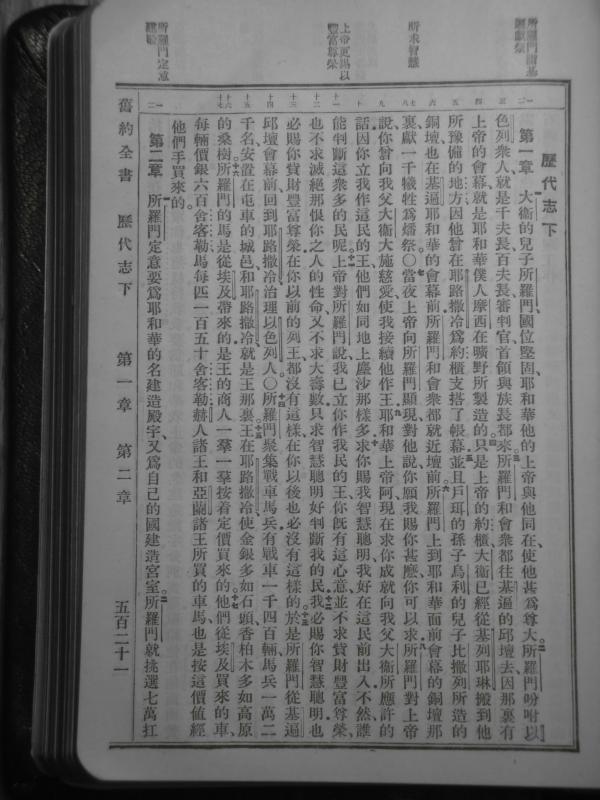 所羅門
所求智慧
上帝更賜以
豐富尊榮
所羅門定意
建殿
歷代志下
第一章 大衛的兒子所羅門國位堅固耶和華他的上帝與他同在使他甚爲尊大所羅門吩咐以
色列衆人就是千夫長百夫長審判官首領與族長都來所羅門和會衆都往基遍的邱壇去因那裏有
上帝的會幕就是耶和華僕人摩西在曠野所製造的只是上帝的約櫃大衛已經從基列耶琳搬到他
所豫備的地方因他曾在耶路撒冷爲約櫃支搭了帳幕並且戶珥的孫子烏利的兒子比撒列所造的
銅壇也在基遍耶和華的會幕前所羅門和會衆都就近壇前所羅門上到耶和華面前會幕的銅壇那
裏獻一千犧牲爲燔祭○當夜上帝向所羅門顯現對他說你願我賜你甚麼你可以求所羅門對上帝
說你曾向我父大衛大施慈愛使我接續他作王耶和華上帝阿現在求你成就向我父大衛所應許的
話因你立我作這民的王他們如同地上塵沙那樣多求你賜我智慧聰明我好在這民前出入不然誰
能判斷這衆多的民呢上帝對所羅門說我已立你作我民的王你旣有這心意並不求貲財豐富尊榮
也不求滅絕那恨你之人的性命又不求大壽數只求智慧聰明好判斷我的民我必賜你智慧聰明也
必賜你貲財豐富尊榮在你以前的列王都沒有這樣在你以後也必沒有這樣的於是所羅門從基遍
邱壇會幕前回到耶路撒冷治理以色列人○所羅門聚集戰車馬兵有戰車一千四百輛馬兵一萬二
千名安置在屯車的城邑和耶路撒冷就是王那裏王在耶路撒冷使金銀多如石頭香柏木多如高原
的桑樹所羅門的馬是從埃及帶來的是王的商人一羣一羣按着定價買來的他們從埃及買來的車
每輛價銀六百舍客勒馬每匹一百五十舍客勒赫人諸王和亞蘭諸王所買的車馬也是按這價值經
他們手買來的
第二章 所羅門定意要爲耶和華的名建造殿宇又爲自己的國建造宮室所羅門就挑選七萬扛
舊約全書 歷代志下 第一章 第二章 五百二十一